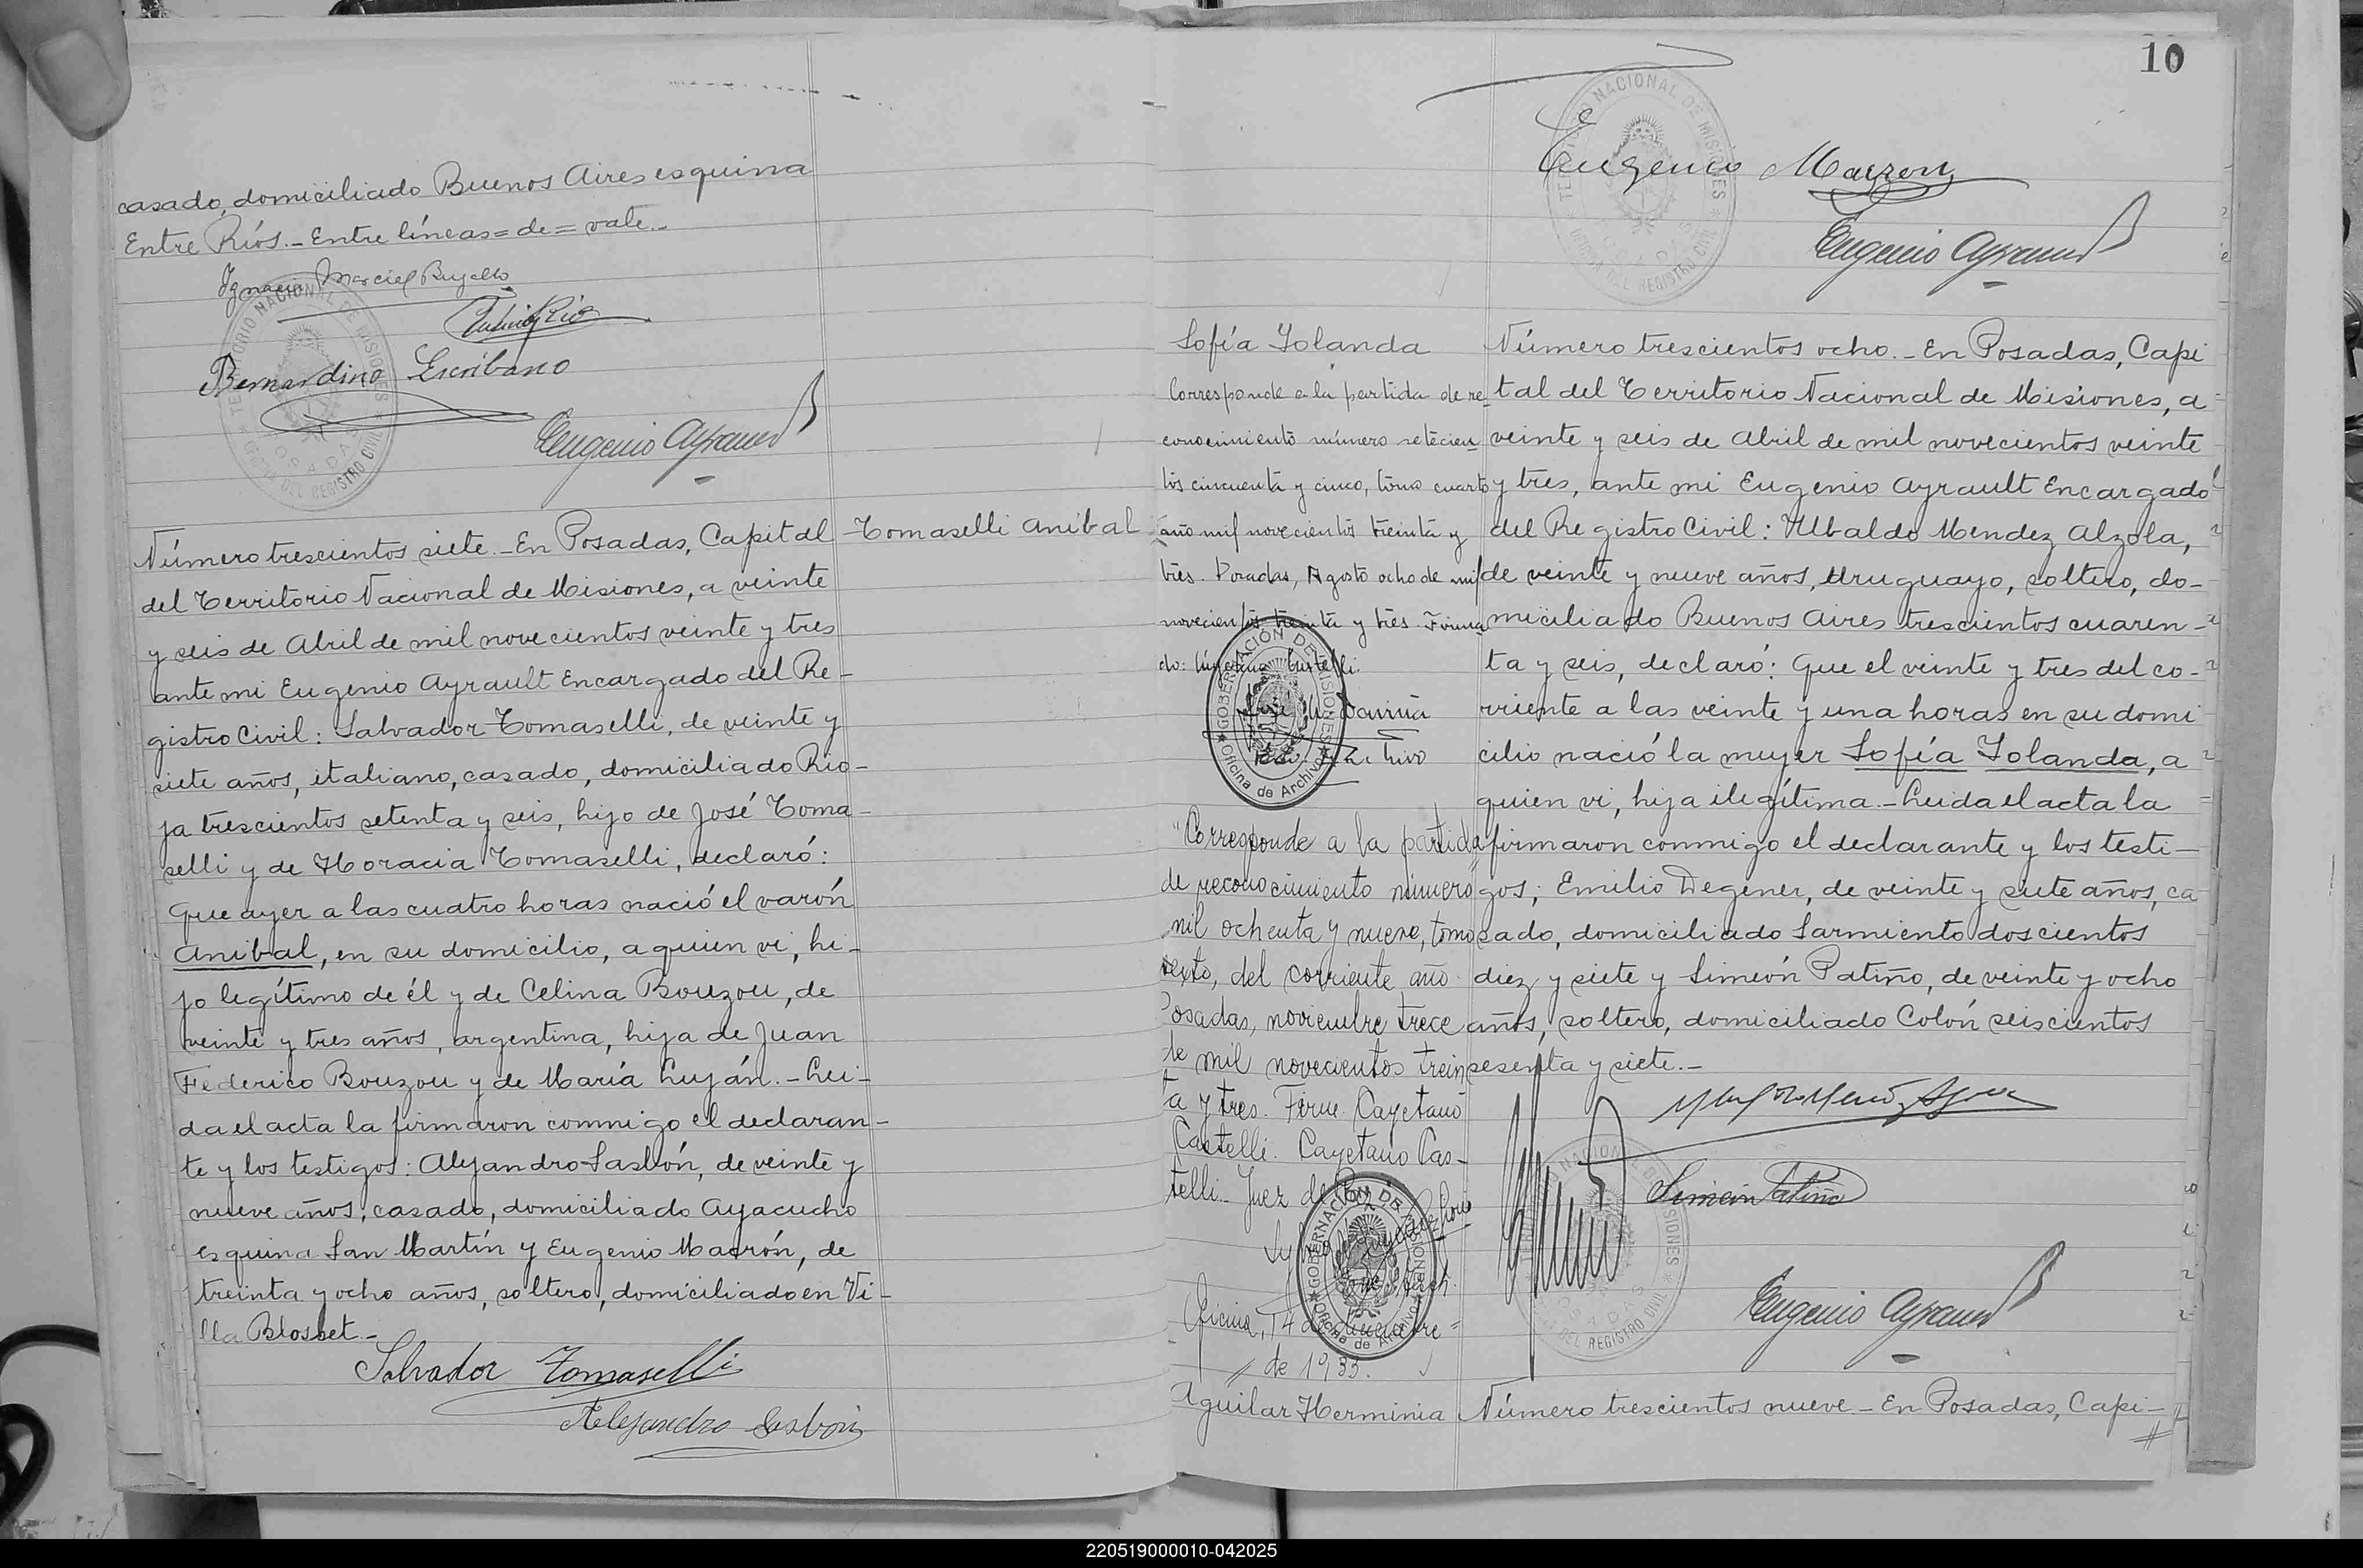 casado, domiciliado Buenos Aires esquina
Entre Ríos.- Entre líneas = de = vale.-
Ignacio Marcial
Bernardino Escribano
Eugenio Ayrault
TERRITORIO NACIONAL DE MISIONES
OFICINA DEL REGISTRO CIVIL
POSADAS
Tomaselli Anibal
Número trescientos siete.- En Posadas, Capital
del Territorio Nacional de Misiones, a veinte
y seis de Abril de mil novecientos veinte y tres
ante mi Eugenio Ayrault Encargado del Re-
gistro Civil: Salvador Tomaselli, de veinte y
siete años, italiano, casado, domiciliado Rio-
ja trescientos setenta y seis, hijo de José Toma-
selli y de Horacia Tomaselli, declaró:
Que ayer a las cuatro horas nació el varón
Anibal, en su domicilio, a quien vi, hi-
jo legítimo de él y de Celina Bouzou, de
veinte y tres años, argentina, hija de Juan
Federico Bouzou y de María Luján.- Lei-
da el acta la firmaron conmigo el declaran-
te y los testigos: Alejandro Lasbón, de veinte y
nueve años, casado, domiciliado Ayacucho
esquina San Martín y Eugenio Maerón, de
treinta y ocho años, soltero, domiciliado en Vi-
lla Blosset.-
Salvador Tomaselli
Alejandro Lasbón
10
TERRITORIO NACIONAL DE MISIONES
OFICINA DEL REGISTRO CIVIL
POSADAS
Eugenio
Eugenio Ayrault
Sofía Yolanda
Corresponde a la partida de re-
conocimiento número setecien-
tos cincuenta y cinco, tomo cuarto
año mil novecientos treinta y
tres. Posadas, Agosto ocho de mil
novecientos treinta y tres. Firma-
do:
GOBERNACIÓN DE MISIONES
Oficina de Archivo
"Corresponde a la partida
de reconocimiento número
mil ochenta y nueve, tomo
sexto, del corriente año
Posadas, noviembre trece
de mil novecientos trein
ta y tres. Firm. Cayetano
Castelli. Cayetano Cas-
telli.- Juez de Paz
GOBERNACIÓN DE MISIONES
Oficina de Archivo
Oficina, 14 de
de 1933.
Número trescientos ocho.- En Posadas, Capi
tal del Territorio Nacional de Misiones, a
veinte y seis de Abril de mil novecientos veinte
y tres, ante mi Eugenio Ayrault Encargado
del Registro Civil: Ubaldo Mendez Alzola,
de veinte y nueve años, Uruguayo, soltero, do-
miciliado Buenos Aires trescientos cuaren-
ta y seis, declaró: Que el veinte y tres del co-
rriente a las veinte y una horas en su domi
cilio nació la mujer Sofía Yolanda, a
quien vi, hija ilegítima.- Leida el acta la
firmaron conmigo el declarante y los testi-
gos; Emilio Degener, de veinte y siete años, ca
sado, domiciliado Sarmiento doscientos
diez y siete y Simeón Patiño, de veinte y ocho
años, soltero, domiciliado Colón seiscientos
sesenta y siete.-
Simeón Patiño
Eugenio Ayrault
TERRITORIO NACIONAL DE MISIONES
OFICINA DEL REGISTRO CIVIL
POSADAS
Aguilar Herminia
Número trescientos nueve.- En Posadas, Capi-
220519000010-042025